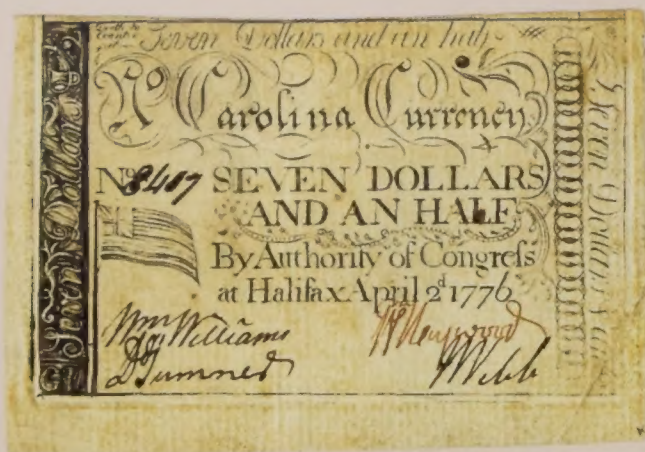 Seven Dollars and an half
No Carolina Currency
No 8407 SEVEN DOLLARS
AND AN HALF
By Authority of Congreſs
at Halifax April 2d 1776
Wm Williams
W Haywood
D Sumner
J Webb
Seven Dollars
Seven Dollars